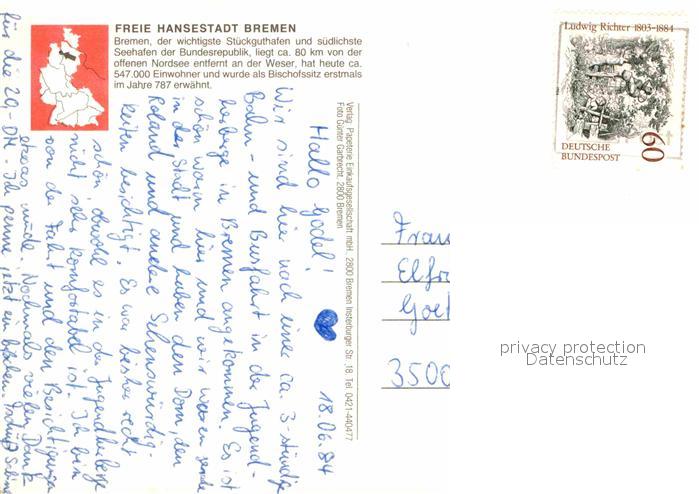 FREIE HANSESTADT BREMEN
Bremen, der wichtigste Stückguthafen und südlichste
Seehafen der Bundesrepublik, liegt ca. 80 km von der
offenen Nordsee entfernt an der Weser, hat heute ca.
547.000 Einwohner und wurde als Bischofssitz erstmals
im Jahre 787 erwähnt.
Verlag: Papeterie Einkaufsgesellschaft mbH · 2800 Bremen Insterburger Str. 18 Tel. 0421-440477
Foto Günter Garbrecht, 2800 Bremen
18.06.84
Hallo Godel!
Wir sind hier nach einer ca. 3-stündige
Bahn- und Busfahrt in der Jugend-
herberge in Bremen angekommen. Es ist
schön warm hier und wir waren gerade
in der Stadt und haben den Dom, den
Roland und andere Sehenswürdig-
keiten besichtigt. Es war bisher recht
schön, obwohl es in der Jugendherberge
nicht sehr komfortabel ist. Ich bin
von der Fahrt und den Besichtigungen
etwas müde. Nochmals vielen Dank
für die 20,- DM. Ich penne jetzt ein bißchen. Tschüß
Ludwig Richter 1803-1884
DEUTSCHE
BUNDESPOST
60
Frau
Elfr
Goet
3500
privacy protection
Datenschutz